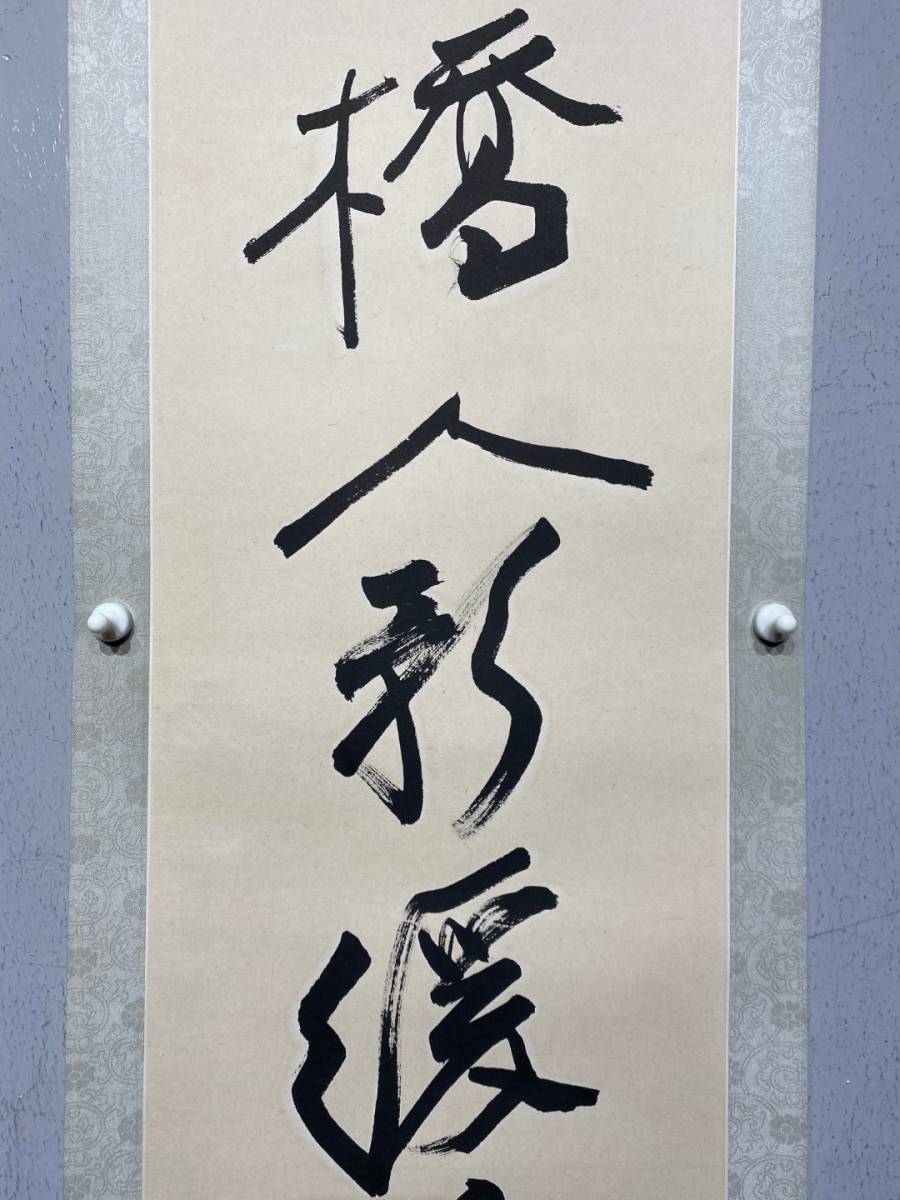 橋人影緩